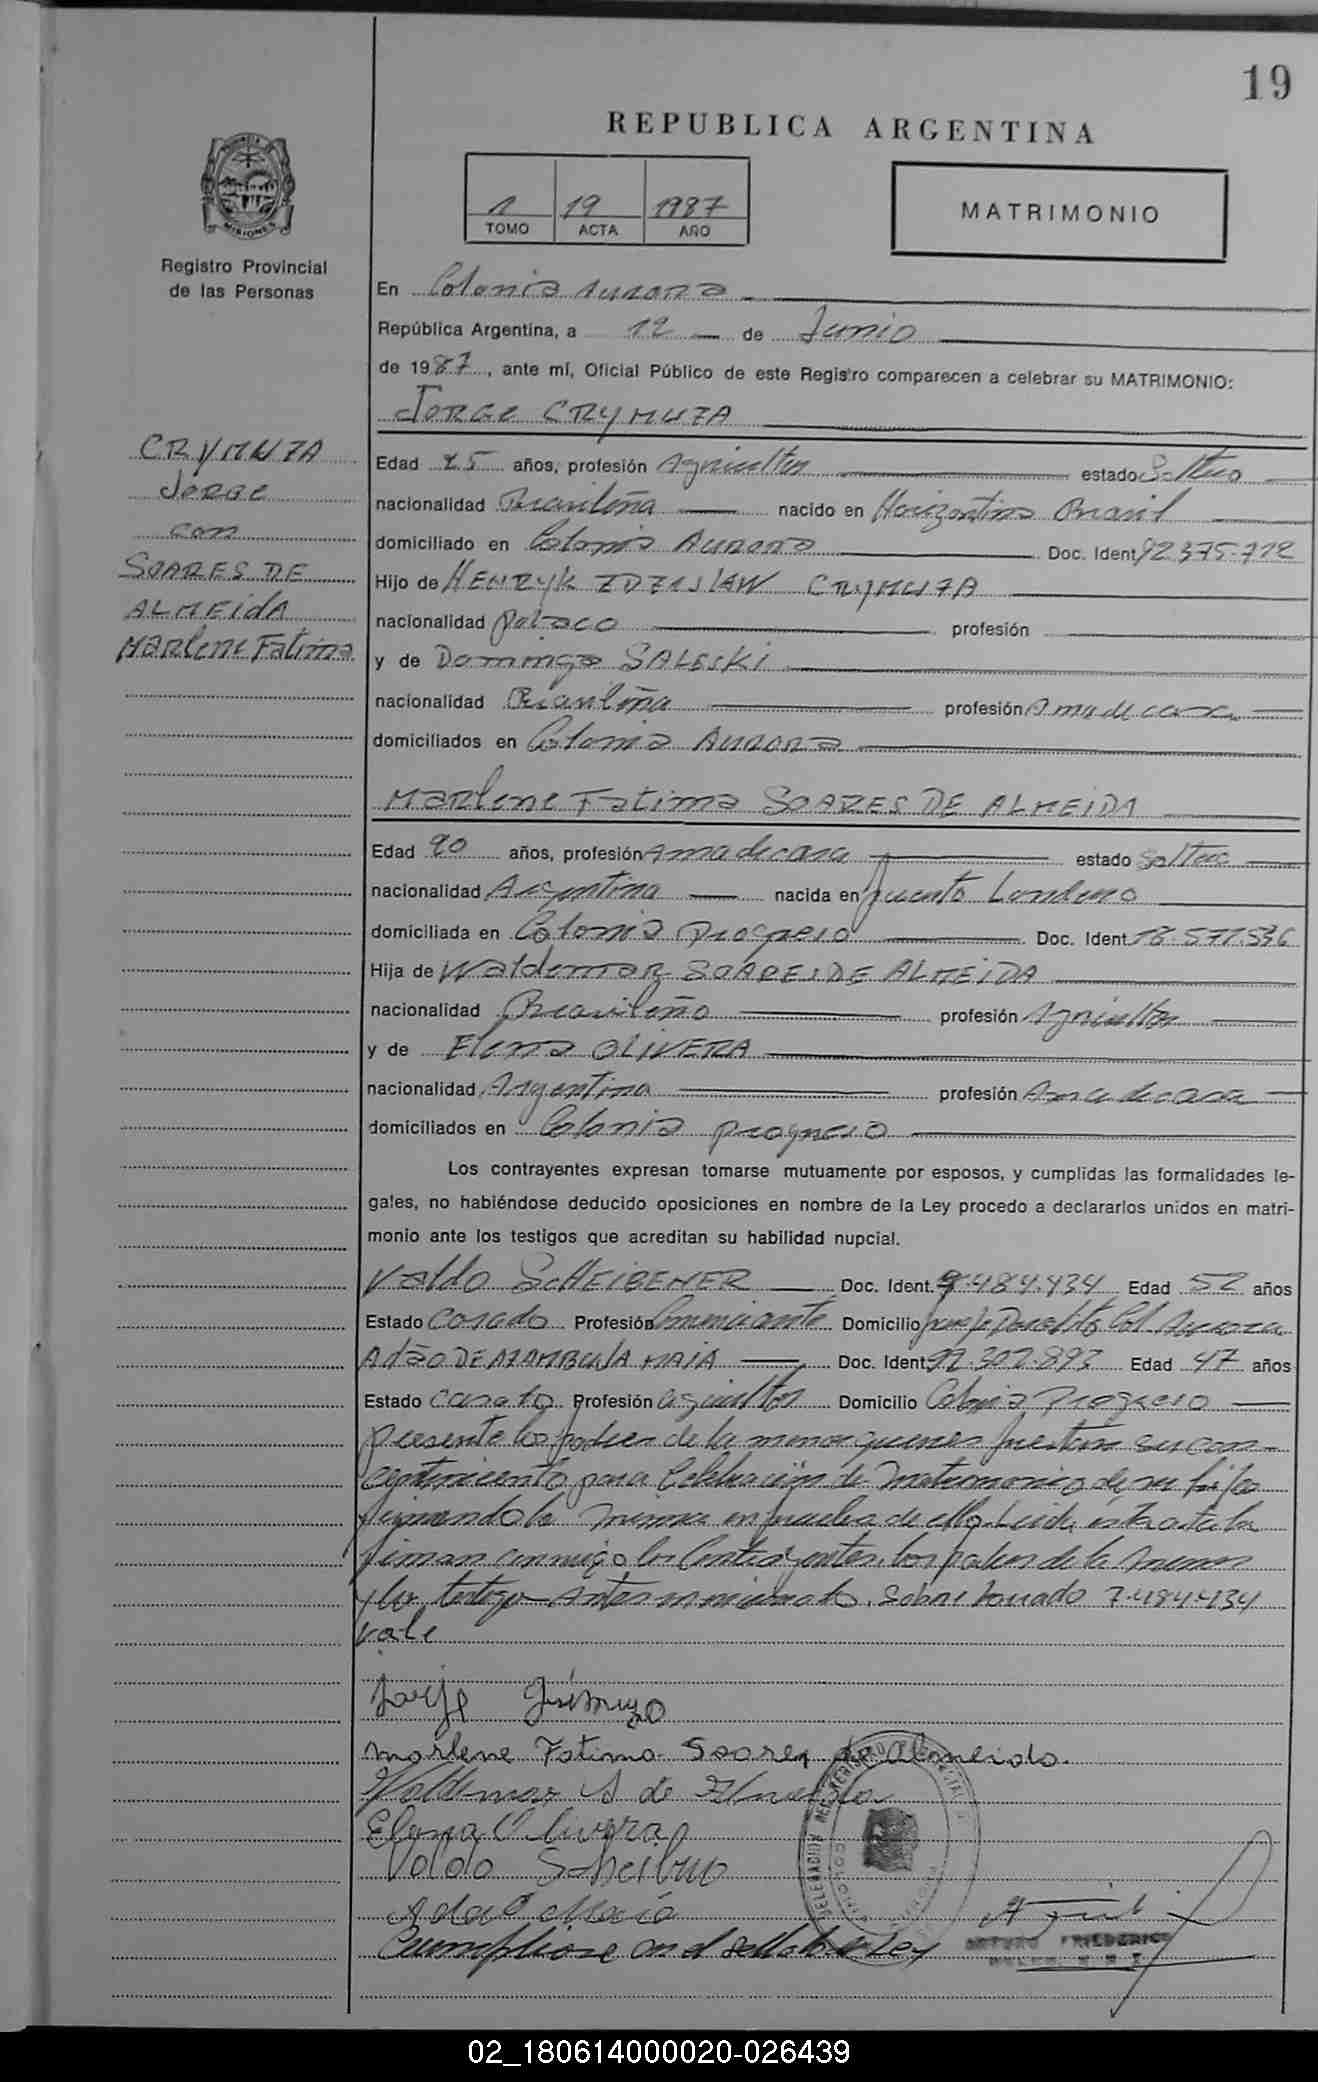 19
REPUBLICA ARGENTINA
PROVINCIA
MISIONES
Registro Provincial
de las Personas
1 19 1987
TOMO ACTA AÑO
MATRIMONIO
En Colonia Aurora
República Argentina, a 12 de Junio
de 1987, ante mí, Oficial Público de este Registro comparecen a celebrar su MATRIMONIO:
JORGE CRYMUZA
CRYMUZA
Jorge
con
SOARES DE
ALMEIDA
Marlene Fatima
Edad 25 años, profesión Agricultor estado Soltero
nacionalidad Brasileña nacido en Horizontina Brasil
domiciliado en Colonia Aurora Doc. Ident. 92.375.712
Hijo de HENRYK ZDZISLAW CRYMUZA
nacionalidad polaco profesión
y de Dominga SALESKI
nacionalidad Brasileña profesión Ama de casa
domiciliados en Colonia Aurora
Marlene Fatima SOARES DE ALMEIDA
Edad 20 años, profesión Ama de casa estado Soltera
nacionalidad Argentina nacida en puerto Londero
domiciliada en Colonia Progreso Doc. Ident. 18.571.536
Hija de Waldemar SOARES DE ALMEIDA
nacionalidad Brasileño profesión Agricultor
y de Elena OLIVERA
nacionalidad Argentina profesión Ama de casa
domiciliados en Colonia progreso
Los contrayentes expresan tomarse mutuamente por esposos, y cumplidas las formalidades le-
gales, no habiéndose deducido oposiciones en nombre de la Ley procedo a declararlos unidos en matri-
monio ante los testigos que acreditan su habilidad nupcial.
Valdo SCHEIBEMER Doc. Ident. 7.484.434 Edad 52 años
Estado Casado Profesión Comerciante Domicilio Col. Aurora
Adão DE AZAMBUJA MAIA Doc. Ident. 92.302.893 Edad 47 años
Estado casado Profesión agricultor Domicilio Colonia Progreso
presente los padres de la menor quienes prestan su con-
centimiento para Celebración de Matrimonio de su hija
firmando la misma en prueba de ello. Leida esta acta la
firman conmigo los Contrayentes, los padres de la menor
y los testigo antes mencionado. Sobre borrado 7.484.434
vale
Jorge
Marlene Fatima Soares de Almeida.
Waldemar S de Almeida
Elena Olivera
Valdo
Adão Maia
ARTURO FRIEDERICH
02_180614000020-026439